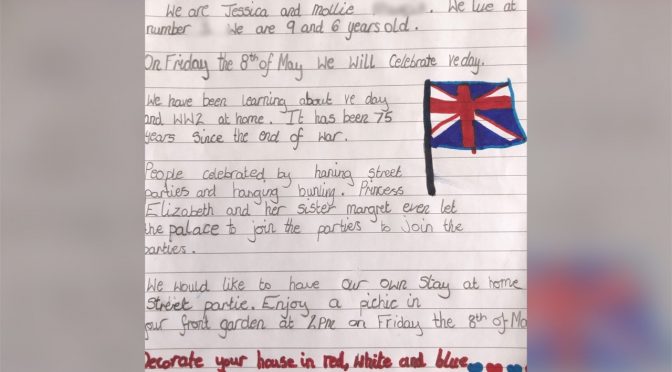 We are Jessica and Mollie . We live at
number . We are 9 and 6 years old.
On Friday the 8th of May we will celebrate ve day.
We have been learning about ve day
and WW2 at home. It has been 75
years since the end of war.
People celebrated by having street
parties and hanging bunting. Princess
Elizabeth and her sister margret even let
the palace to join the parties to join the
parties.
We would like to have our own stay at home
street partie. Enjoy a picnic in
your front garden at 2pm on Friday the 8th of Ma
Decorate your house in red, white and blue